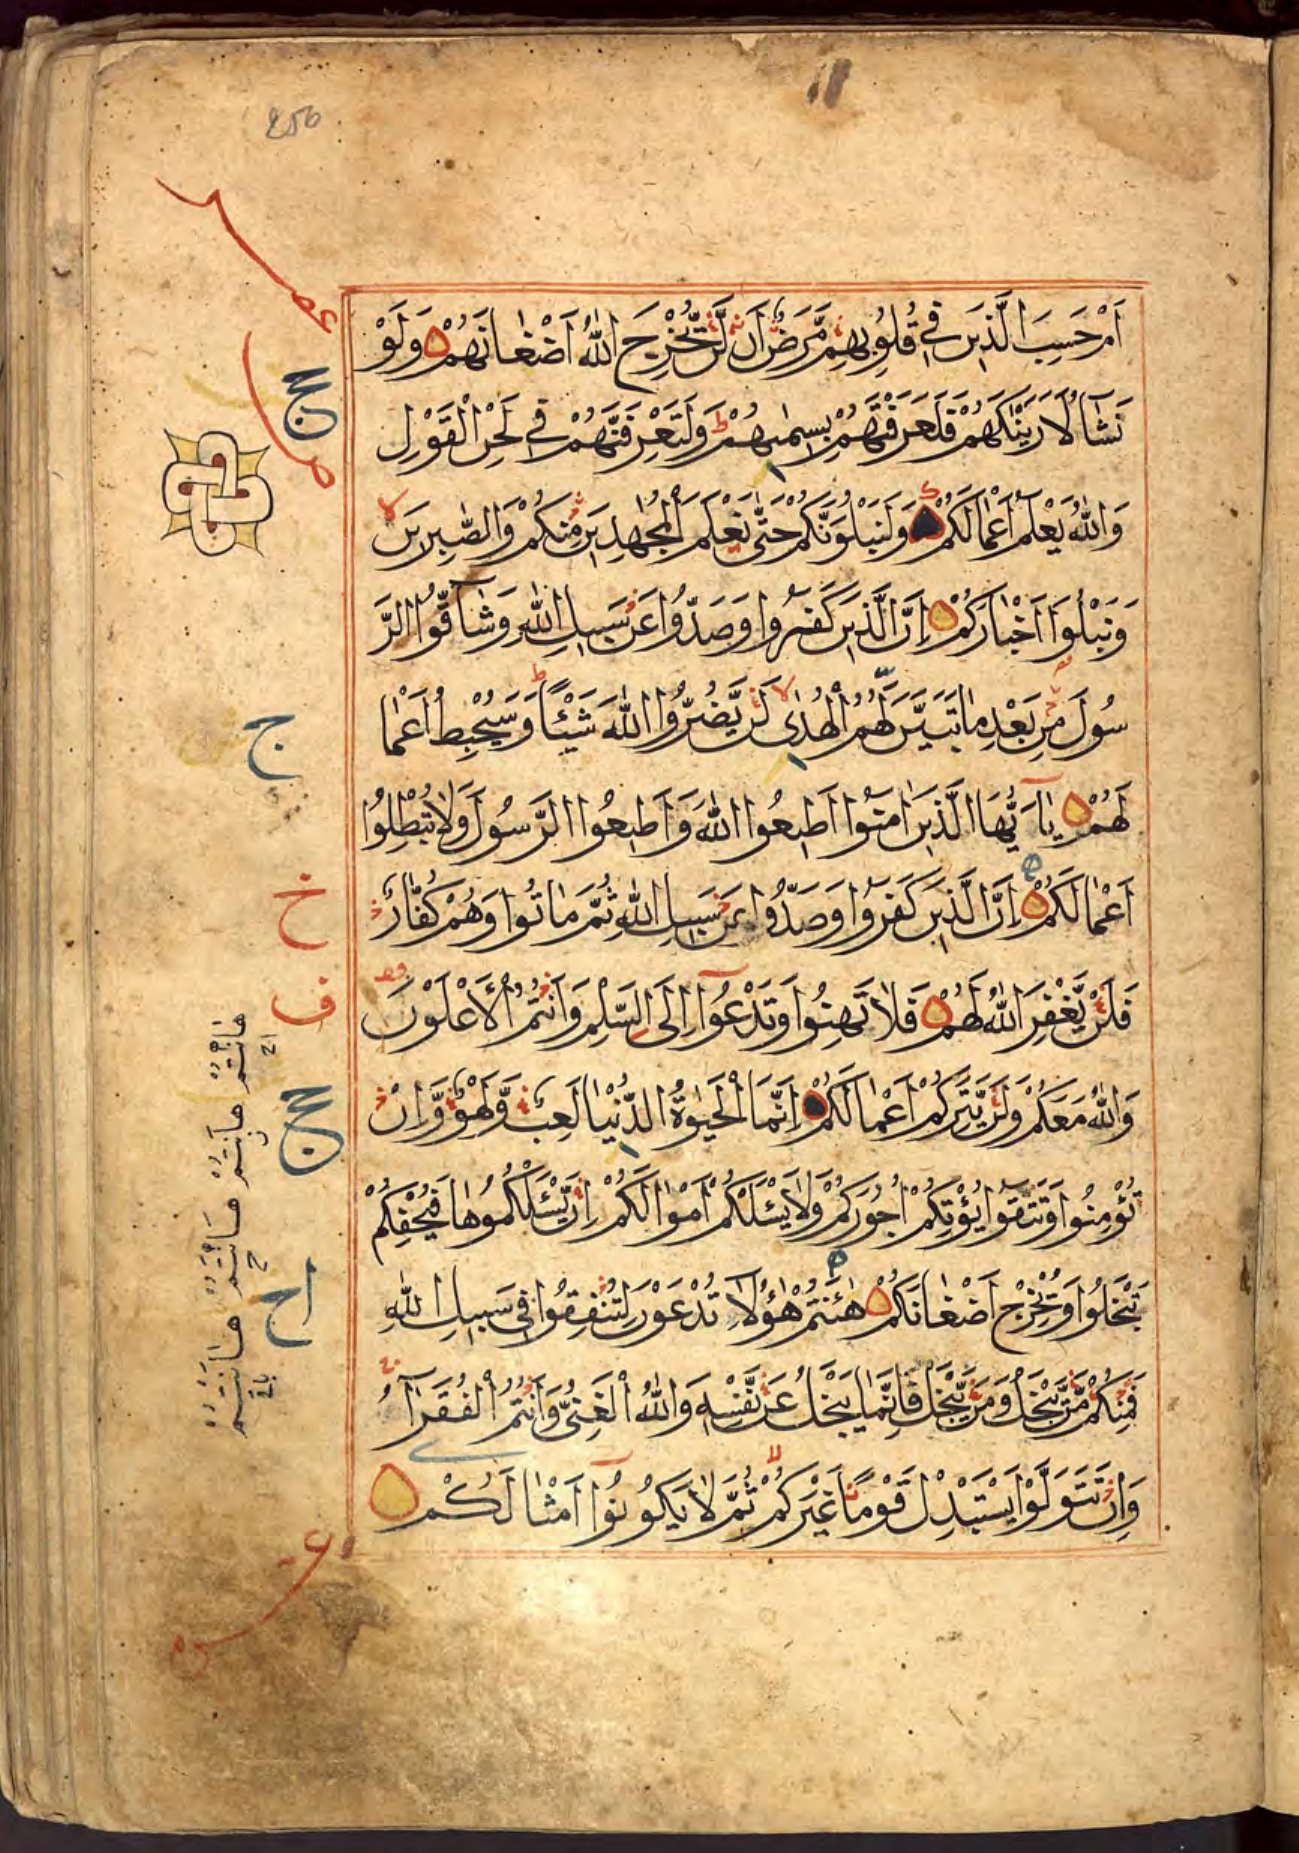 اَمْ حَسِبَ الَّذِينَ فِي قُلُوبِهِمْ مَّرَضٌ اَنْ لَّنْ يُّخْرِجَ اللّٰهُ اَضْغَانَهُمْ وَلَوْ
نَشَآءُ لَاَرَيْنٰكَهُمْ فَلَعَرَفْتَهُمْ بِسِيمٰيهُمْ وَلَتَعْرِفَنَّهُمْ فِي لَحْنِ الْقَوْلِ
وَاللّٰهُ يَعْلَمُ اَعْمَالَكُمْ وَلَنَبْلُوَنَّكُمْ حَتّٰى نَعْلَمَ الْمُجٰهِدِينَ مِنْكُمْ وَالصّٰبِرِينَ
وَنَبْلُوَا اَخْبَارَكُمْ اِنَّ الَّذِينَ كَفَرُوا وَصَدُّوا عَنْ سَبِيلِ اللّٰهِ وَشَآقُّوا الرَّ
سُولَ مِنْ بَعْدِ مَا تَبَيَّنَ لَهُمُ الْهُدٰى لَنْ يَّضُرُّوا اللّٰهَ شَيْئًا وَسَيُحْبِطُ اَعْمَا
لَهُمْ يَآ اَيُّهَا الَّذِينَ اٰمَنُوا اَطِيعُوا اللّٰهَ وَاَطِيعُوا الرَّسُولَ وَلَا تُبْطِلُوا
اَعْمَالَكُمْ اِنَّ الَّذِينَ كَفَرُوا وَصَدُّوا عَنْ سَبِيلِ اللّٰهِ ثُمَّ مَاتُوا وَهُمْ كُفَّارٌ
فَلَنْ يَّغْفِرَ اللّٰهُ لَهُمْ فَلَا تَهِنُوا وَتَدْعُوٓا اِلَى السَّلْمِ وَاَنْتُمُ الْاَعْلَوْنَ
وَاللّٰهُ مَعَكُمْ وَلَنْ يَّتِرَكُمْ اَعْمَالَكُمْ اِنَّمَا الْحَيٰوةُ الدُّنْيَا لَعِبٌ وَّلَهْوٌ وَّاِنْ
تُؤْمِنُوا وَتَتَّقُوا يُؤْتِكُمْ اُجُورَكُمْ وَلَا يَسْئَلْكُمْ اَمْوَالَكُمْ اِنْ يَّسْئَلْكُمُوهَا فَيُحْفِكُمْ
تَبْخَلُوا وَيُخْرِجْ اَضْغَانَكُمْ هٰٓاَنْتُمْ هٰٓؤُلَآءِ تُدْعَوْنَ لِتُنْفِقُوا فِي سَبِيلِ اللّٰهِ
فَمِنْكُمْ مَّنْ يَّبْخَلُ وَمَنْ يَّبْخَلْ فَاِنَّمَا يَبْخَلُ عَنْ نَّفْسِهِ وَاللّٰهُ الْغَنِيُّ وَاَنْتُمُ الْفُقَرَآءُ
وَاِنْ تَتَوَلَّوْا يَسْتَبْدِلْ قَوْمًا غَيْرَكُمْ ثُمَّ لَا يَكُونُوٓا اَمْثَالَكُمْ
ج
خ
ف
اح